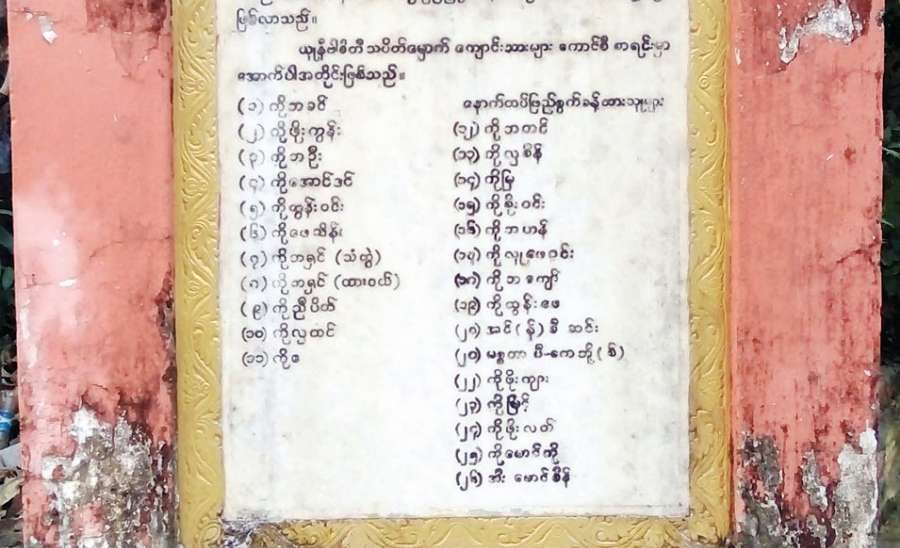 ဖြစ်လာသည်။
ယူနီဗါစိတီ သပိတ်မှောက် ကျောင်းသားများ ကောင်စီ စာရင်းမှာ
အောက်ပါအတိုင်းဖြစ်သည်။
(၁) ကိုဘခင်
(၂) ကိုဖိုးကွန်း
(၃) ကိုဘဦး
(၄) ကိုအောင်ဒင်
(၅) ကိုထွန်းဝင်း
(၆) ကိုဖေသိန်း
(၇) ကိုဘရှင် (သံတွဲ)
(၈) ကိုဘရှင် (ထားဝယ်)
(၉) ကိုညီပိတ်
(၁၀) ကိုလှထင်
(၁၁) ကိုဧ
နောက်ထပ်ဖြည့်စွက်ခန့်ထားသူများ
(၁၂) ကိုဘတင်
(၁၃) ကိုလှစိန်
(၁၄) ကိုမြ
(၁၅) ကိုစိုးဝင်း
(၁၆) ကိုဘဟန်
(၁၇) ကိုလူဖေဝင်း
(၁၈) ကိုဘကျော်
(၁၉) ကိုထွန်းဖေ
အင်(န်) စီ ဆင်း
မစ္စတာ ပီ-ကေဘို့(စ်)
(၂၂) ကိုဖိုးကျား
(၂၃) ကိုမြင့်
(၂၄) ကိုဖိုးလတ်
(၂၅) ကိုမောင်ကို
(၂၆) အီး မောင်စိန်